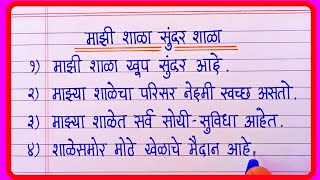 माझी शाळा सुंदर शाळा
१) माझी शाळा खूप सुंदर आहे.
२) माझ्या शाळेचा परिसर नेहमी स्वच्छ असतो.
३) माझ्या शाळेत सर्व सोयी-सुविधा आहेत.
४) शाळेसमोर मोठे खेळाचे मैदान आहे.